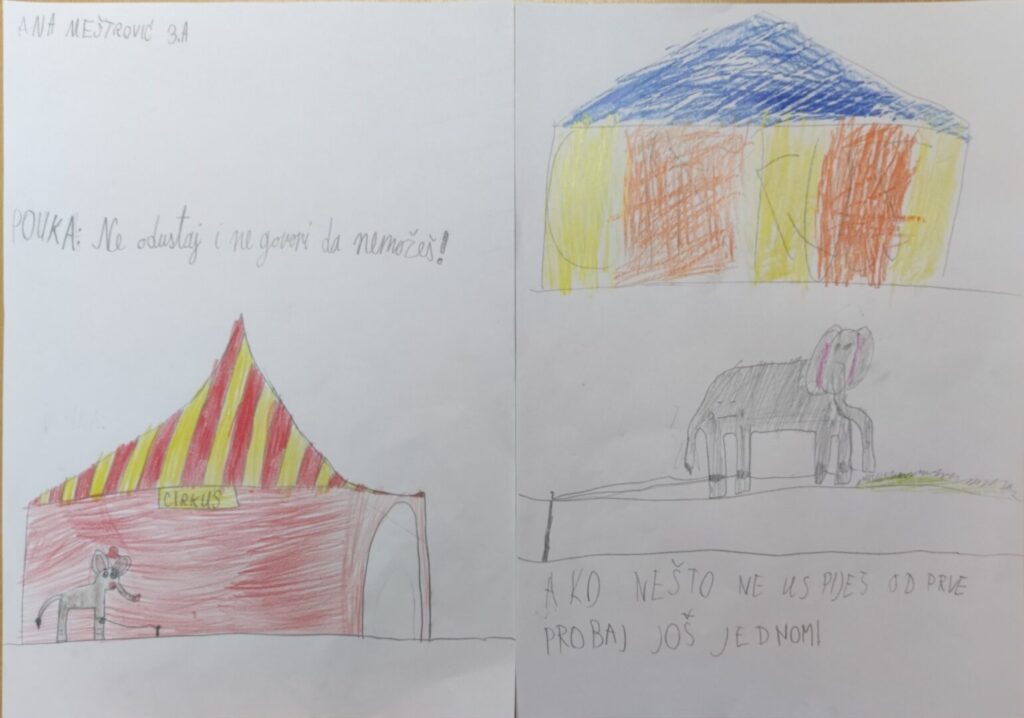 ANA MEŠTROVIĆ 3.A
POUKA: Ne odustaj i ne govori da nemožeš!
CIRKUS
AKO NEŠTO NE USPIJEŠ OD PRVE
PROBAJ JOŠ JEDNOM!